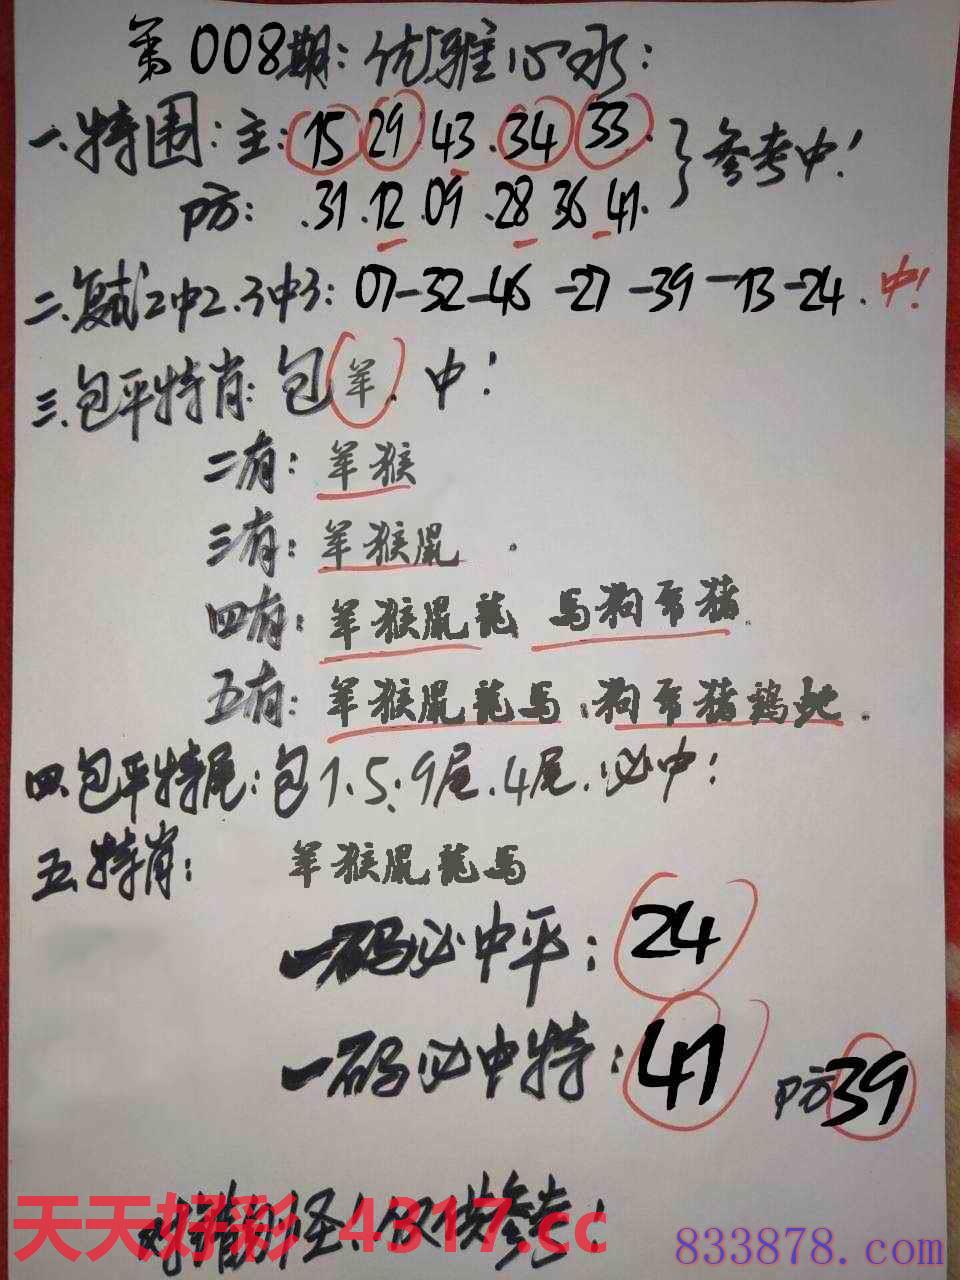 第008期:优雅心水:
一.特围:主:15 29 43.34 33.
防:.31.12.09.28 36 41.
}参考中!
二.复试2中2.3中3:07-32-46-27-39-13-24.中!
三.包平特肖:包羊.中!
二有:羊猴
三有:羊猴鼠.
四有:羊猴鼠龍 馬狗兎猪.
五有:羊猴鼠龍馬.狗兎猪鷄蛇.
四.包平特尾:包1.5.9尾.4尾.必中!
五.特肖: 羊猴鼠龍馬
一码必中平:24
一码必中特:41 防39
仅供参考!
天天好彩 4317.cc
833878.com